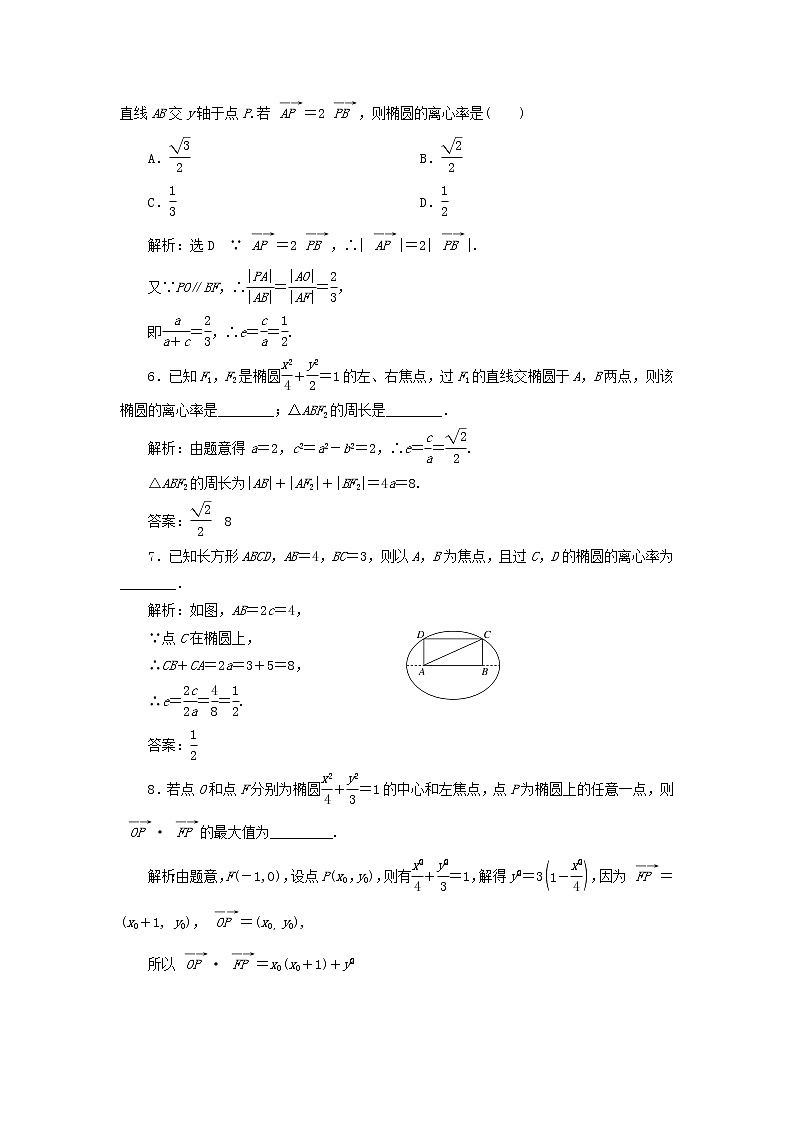 直线 AB 交 y 轴于点 P.若 \overrightarrow{AP}=2 \overrightarrow{PB},则椭圆的离心率是(  )
A.\frac{\sqrt{3}}{2}  B.\frac{\sqrt{2}}{2}
C.\frac{1}{3}  D.\frac{1}{2}
解析:选 D ∵ \overrightarrow{AP}=2 \overrightarrow{PB},∴|\overrightarrow{AP}|=2|\overrightarrow{PB}|.
又∵PO∥BF,∴\frac{|PA|}{|AB|}=\frac{|AO|}{|AF|}=\frac{2}{3},
即\frac{a}{a+c}=\frac{2}{3},∴e=\frac{c}{a}=\frac{1}{2}.
6.已知 F₁,F₂是椭圆\frac{x²}{4}+\frac{y²}{2}=1 的左、右焦点,过 F₁的直线交椭圆于 A,B 两点,则该
椭圆的离心率是________;△ABF₂的周长是________.
解析:由题意得 a=2,c²=a²-b²=2,∴e=\frac{c}{a}=\frac{\sqrt{2}}{2}.
△ABF₂的周长为|AB|+|AF₂|+|BF₂|=4a=8.
答案:\frac{\sqrt{2}}{2} 8
7.已知长方形 ABCD,AB=4,BC=3,则以 A,B 为焦点,且过 C,D 的椭圆的离心率为
________.
解析:如图,AB=2c=4,
∵点 C 在椭圆上,
∴CB+CA=2a=3+5=8,
∴e=\frac{2c}{2a}=\frac{4}{8}=\frac{1}{2}.
D C
A B
答案:\frac{1}{2}
8.若点 O 和点 F 分别为椭圆\frac{x²}{4}+\frac{y²}{3}=1 的中心和左焦点,点 P 为椭圆上的任意一点,则
\overrightarrow{OP}·\overrightarrow{FP}的最大值为_________.
解析:由题意,F(-1,0),设点 P(x₀,y₀),则有\frac{x₀²}{4}+\frac{y₀²}{3}=1,解得 y₀²=3(1-\frac{x₀²}{4}),因为 \overrightarrow{FP}=
(x₀+1, y₀), \overrightarrow{OP}=(x₀,y₀),
所以 \overrightarrow{OP}·\overrightarrow{FP}=x₀(x₀+1)+y₀²